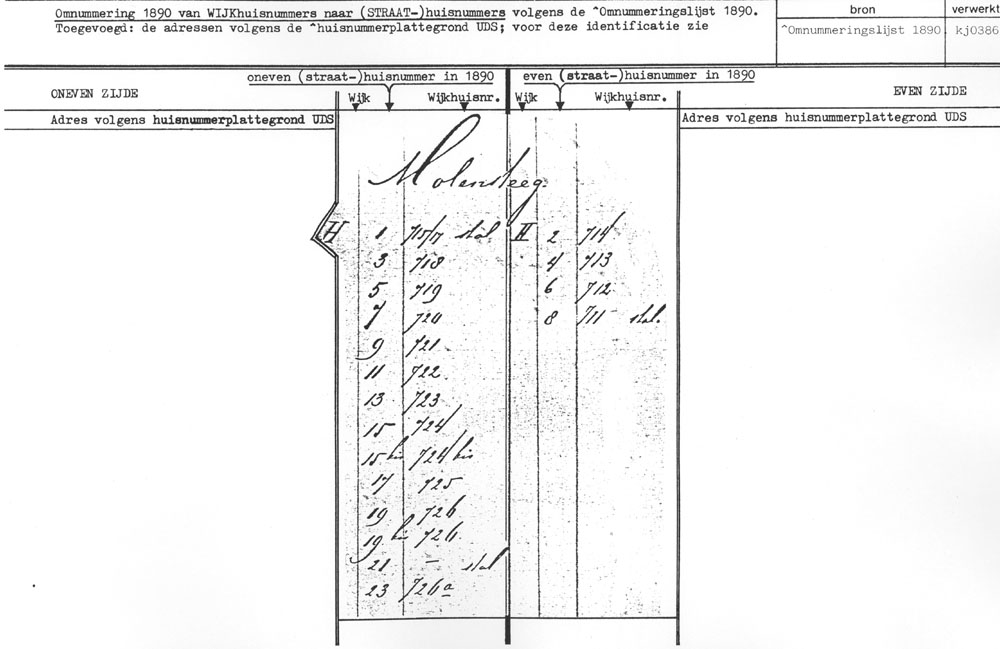 Omnummering 1890 van WIJKhuisnummers naar (STRAAT-)huisnummers volgens de ^Omnummeringslijst 1890.
Toegevoegd: de adressen volgens de ^huisnummerplattegrond UDS; voor deze identificatie zie
bron
verwerkt
^Omnummeringslijst 1890
kj0386
oneven (straat-)huisnummer in 1890
even (straat-)huisnummer in 1890
ONEVEN ZIJDE
Wijk
Wijkhuisnr.
Wijk
Wijkhuisnr.
EVEN ZIJDE
Adres volgens huisnummerplattegrond UDS
Adres volgens huisnummerplattegrond UDS
Molensteeg.
H 1 715/17 stal. H 2 714
3 718 4 713
5 719 6 712
7 720 8 711 stal.
9 721
11 722
13 723
15 724
15 bis 724 bis
17 725
19 726
19 bis 726
21 — stal
23 726a